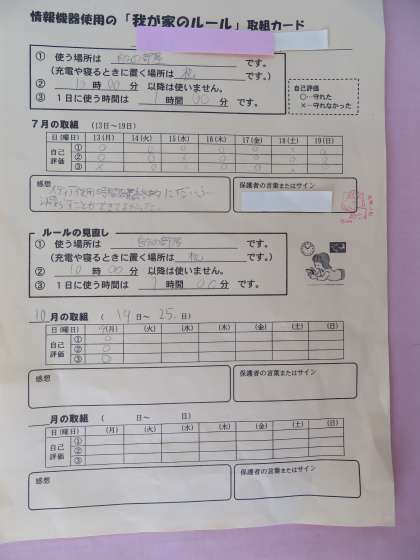 情報機器使用の「我が家のルール」取組カード
① 使う場所は 自分の部屋 です。
(充電や寝るときに置く場所は 机 です。
② 10 時 00 分 以降は使いません。
③ 1日に使う時間は 時間 00 分 です。
自己評価
○…守れた
×…守れなかった
7月の取組 (13日~19日)
日(曜日) 13(月) 14(火) 15(水) 16(木) 17(金) 18(土) 19(日)
自己評価
①
②
③
感想
保護者の言葉またはサイン
ルールの見直し
① 使う場所は 自分の部屋 です。
(充電や寝るときに置く場所は 机 です。
② 10 時 00 分 以降は使いません。
③ 1日に使う時間は 1 時間 00 分 です。
10月の取組 ( 19日~ 25日)
日(曜日) (月) (火) (水) (木) (金) (土) (日)
自己評価
① ○
② ○
③ ○
感想
保護者の言葉またはサイン
月の取組 ( 日~ 日)
日(曜日) (月) (火) (水) (木) (金) (土) (日)
自己評価
①
②
③
感想
保護者の言葉またはサイン